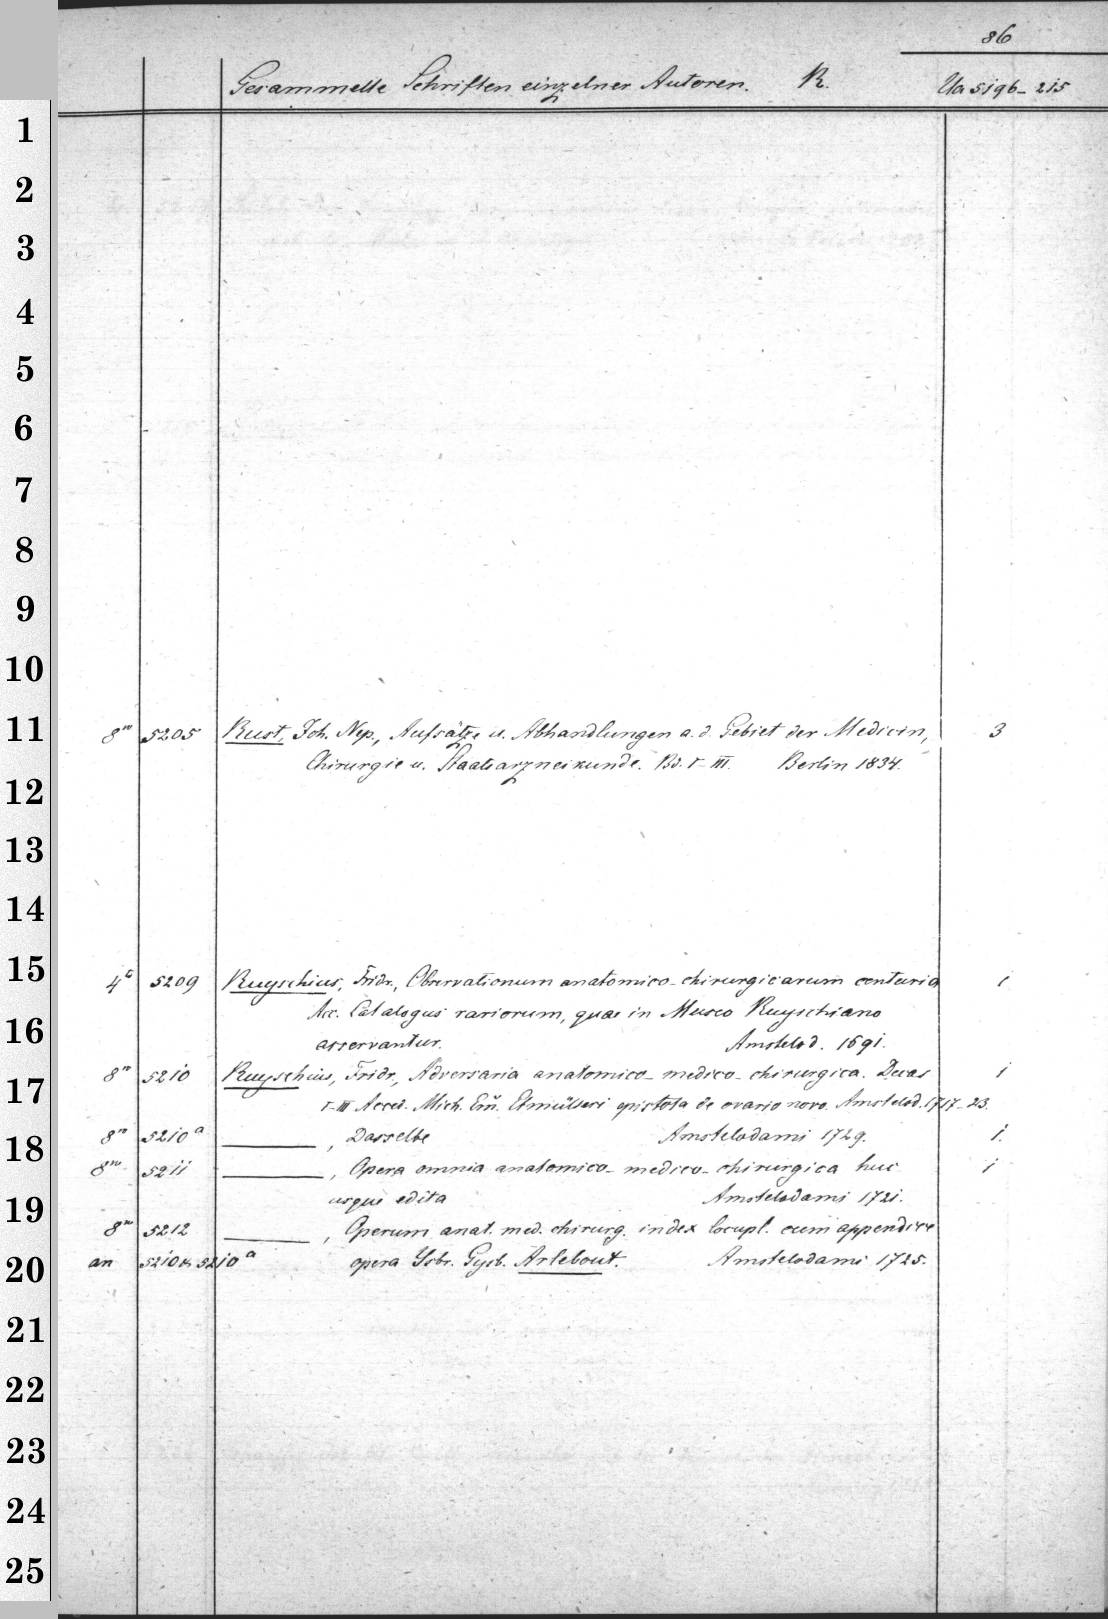 86
Gesammelte Schriften einzelner Autoren. R. Ua 5196-215
1
2
3
4
5
6
7
8
9
10
11
8° 5205 Rust, Joh. Nep., Aufsätze u. Abhandlungen a. d. Gebiet der Medicin, 3
Chirurgie u. Staatsarzneikunde. Bd. I-III. Berlin 1834.
12
13
14
15
4° 5209 Ruyschius, Fridr., Observationum anatomico-chirurgicarum centuria 1
Acc. Catalogus rariorum, quae in Museo Ruyschiano
16
asservantur. Amstelod. 1691.
17
8° 5210 Ruyschius, Fridr., Adversaria anatomico-medico-chirurgica. Decas 1
I-III Acced. Mich. Ern. Etmülleri epistola de ovario novo. Amstelod. 1717-23.
18
8° 5210a ———, Dasselbe Amstelodami 1729. 1.
8° 5211 ———, Opera omnia anatomico-medico-chirurgica huc 1
19
usque edita Amstelodami 1721.
8° 5212 ———, Operum anat. med. chirurg. index locupl. cum appendice
20
an 5210 u. 5210a opera Ysbr. Gysb. Arlebout. Amstelodami 1725.
21
22
23
24
25